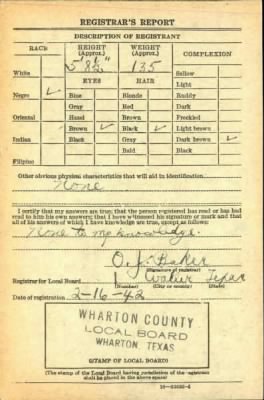 REGISTRAR'S REPORT
DESCRIPTION OF REGISTRANT
RACE HEIGHT (Approx.) WEIGHT (Approx.) COMPLEXION
5'8½" 135
White Sallow
EYES HAIR Light
Negro ✓ Blue Blonde Ruddy
Gray Red Dark
Oriental Hazel Brown Freckled
Brown ✓ Black ✓ Light brown
Indian Black Gray Dark brown ✓
Bald Black
Filipino
Other obvious physical characteristics that will aid in identification
None
I certify that my answers are true; that the person registered has read or has had
read to him his own answers; that I have witnessed his signature or mark and that
all of his answers of which I have knowledge are true, except as follows:
None to my knowledge.
O. J. Baker
(Signature of registrar)
Registrar for Local Board 1 Texas
(Number) (City or county) (State)
Date of registration 2-16-42
WHARTON COUNTY
LOCAL BOARD
WHARTON TEXAS
(STAMP OF LOCAL BOARD)
(The stamp of the Local Board having jurisdiction of the registrant
shall be placed in the above space)